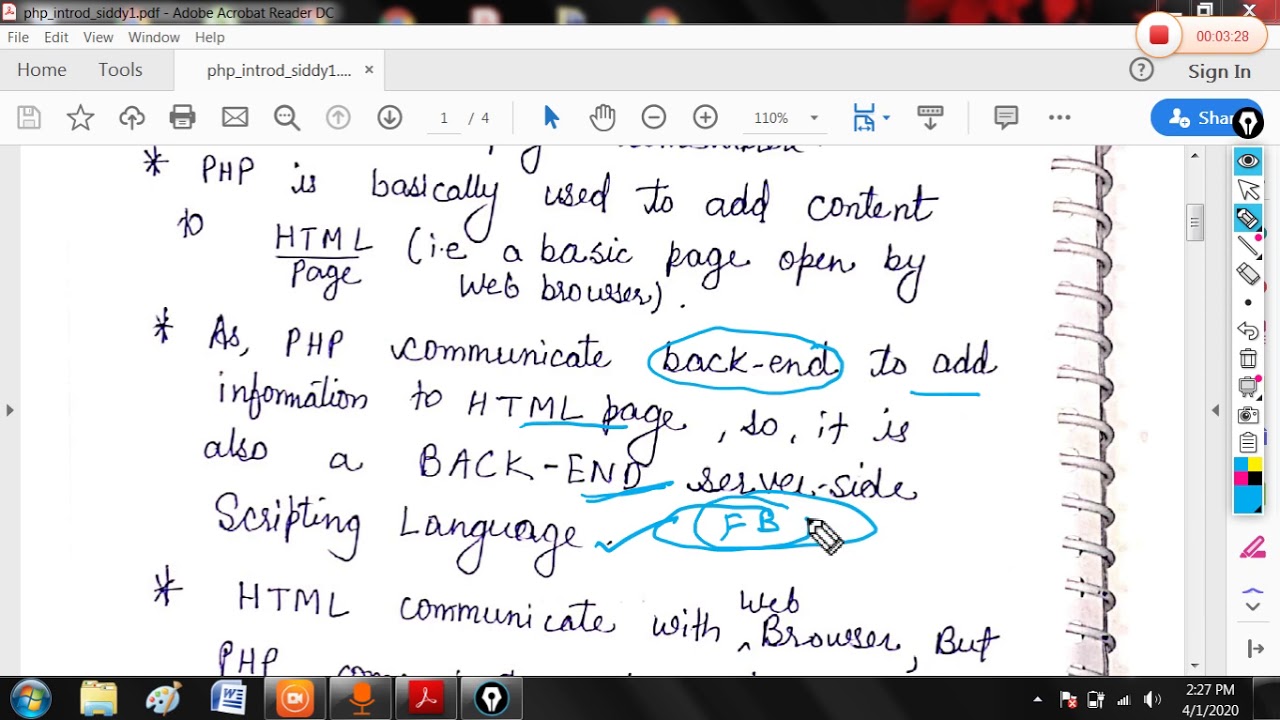 php_introd_siddy1.pdf - Adobe Acrobat Reader DC
File Edit View Window Help
00:03:28
Home Tools php_introd_siddy1.... × Sign In
1 / 4 110% Shar
* PHP is basically used to add content
to HTML Page (i.e a basic page open by
Web browser).
* As, PHP communicate back-end to add
information to HTML page, so, it is
also a BACK-END server-side
Scripting Language.
FB
* HTML communicate with Web Browser, But
PHP
2:27 PM
4/1/2020